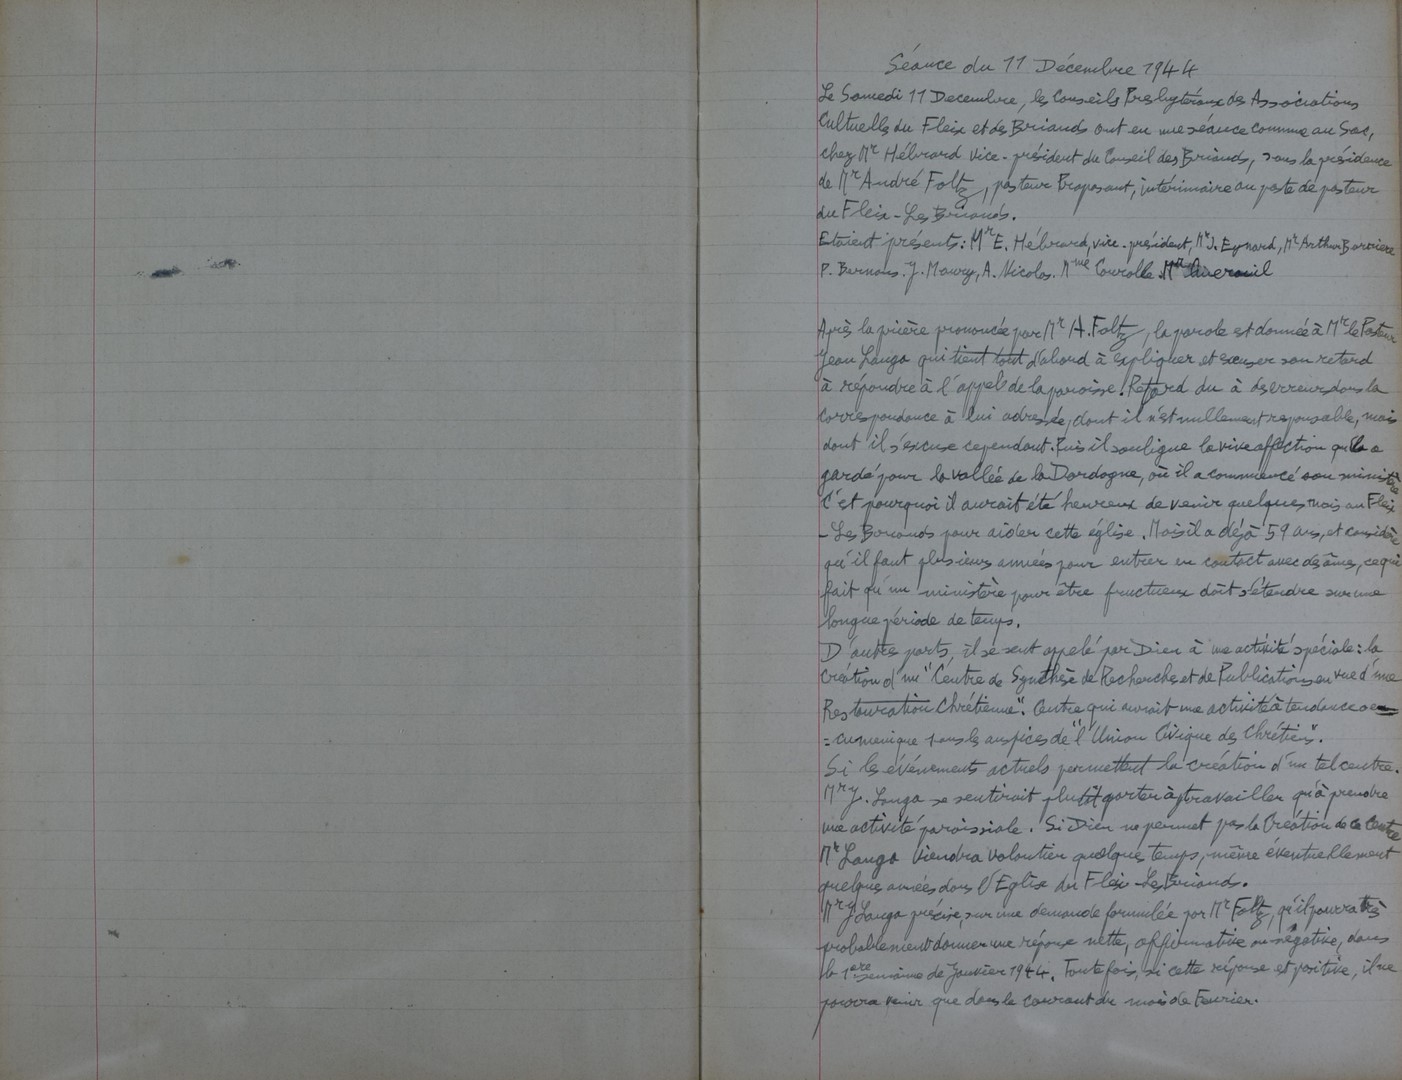 Séance du 11 Décembre 1944
Le Samedi 11 Decembre, les Conseils Presbytéraux des Associations
Cultuelles du Fleix et des Briands ont eu une séance commune au Sac,
chez Mr Hébrard vice-président du Conseil des Briands, sous la présidence
de Mr André Foltz, pasteur Proposant, intérimaire au poste de pasteur
du Fleix-Les Briands.
Etaient présents: Mr E. Hébrard, vice-président, Mr J. Eynard, Mr Arthur Barrière
P. Bernous. J. Maury, A. Nicolas. Mme Courolle. Mr
Après la prière prononcée par Mr A. Foltz, la parole est donnée à Mr le Pasteur
Jean Langa qui tient tout d'abord à expliquer et excuser son retard
à répondre à l'appel de la paroisse. Retard du à des erreurs dans la
correspondance à lui adressée, dont il n'est nullement responsable, mais
dont il s'excuse cependant. Puis il souligne la vive affection qu'il a
gardé pour la vallée de la Dordogne, où il a commencé son ministère
C'est pourquoi il aurait été heureux de venir quelques mois au Fleix
-Les Briands pour aider cette église. Mais il a déjà 59 ans, et considère
qu'il faut plusieurs années pour entrer en contact avec des âmes, ce qui
fait qu'un ministère pour être fructueux doit s'étendre sur une
longue période de temps.
D'autres parts, il se sent appelé par Dieu à une activité spéciale: la
création d'un "Centre de Synthèse de Recherches et de Publications en vue d'une
Restauration Chrétienne". Centre qui aurait une activité à tendance oe
=cuménique sous les auspices de "l'Union Civique des Chrétiens".
Si les événements actuels permettent la création d'un tel centre.
Mr J. Langa se sentirait plutôt porter à y travailler qu'à prendre
une activité paroissiale. Si Dieu ne permet pas la Création de ce Centre
Mr Langa viendra volontier quelques temps, même éventuellement
quelques années dans l'Eglise du Fleix-Les Briands.
Mr J Langa précise, sur une demande formulée par Mr Foltz, qu'il pourra très
probablement donner une réponse nette, affirmative ou négative, dans
la 1ère semaine de Janvier 1944. Toutefois, si cette réponse est positive, il ne
pourra venir que dans le courant du mois de Fevrier.